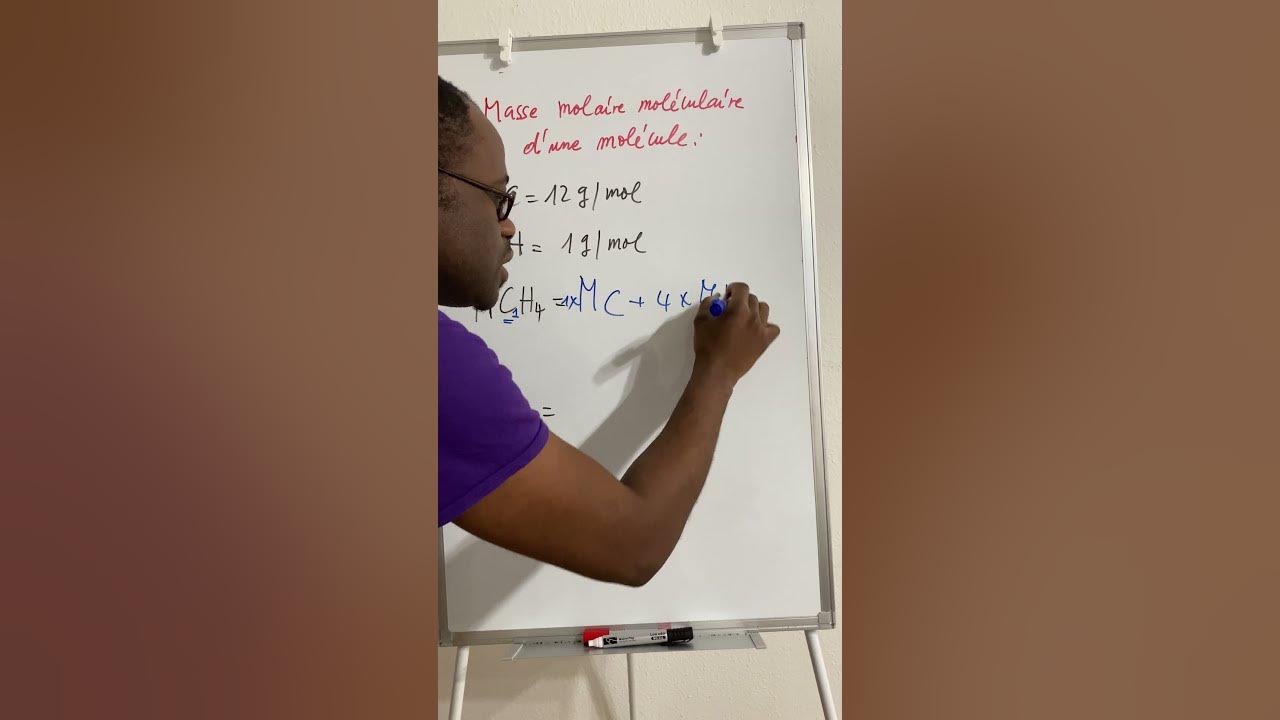 Masse molaire moléculaire
d'une molécule:
= 12 g/mol
H = 1 g/mol
M C₁H₄ = 1x M C + 4 x M
=